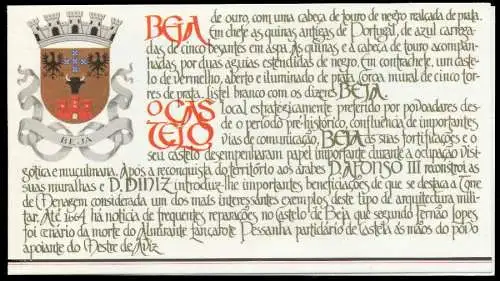 BEJA de ouro, com uma cabeça de touro de negro realçada de prata.
Em chefe as quinas antigas de Portugal, de azul carrega-
das de cinco besantes em aspa. As quinas e a cabeça de touro acompan-
hadas, por duas águias estendidas de negro. Em contrachefe, um caste-
lo de vermelho, aberto e iluminado de prata. Coroa mural de cinco tor-
res de prata. Listel branco com os dizeres BEJA.
O CAS
TELO
local estrategicamente preferido por povoadores des-
de o período pré-histórico, confluência de importantes
vias de comunicação, BEJA as suas fortificações e o
seu castelo desempenharam papel importante durante a ocupação visi-
gótica e muçulmana. Após a reconquista do território aos árabes D. AFONSO III reconstroi as
suas muralhas e D. DINIZ introduz-lhe importantes beneficiações de que se destaca a Torre
de Menagem considerada um dos mais interessantes exemplos deste tipo de arquitectura mili-
tar. Até 1664 há notícia de frequentes reparações no Castelo de Beja que segundo Fernão Lopes
foi cenário da morte do Almirante Lançarote Pessanha partidário de Castela às mãos do povo
apoiante do Mestre de Aviz
BEJA